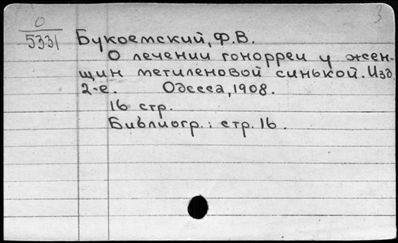 О
5331
3
Букоемский, Ф.В.
О лечении гонорреи у жен-
щин метиленовой синькой. Изд.
2-е. Одесса, 1908.
16 стр.
Библиогр.: стр. 16.